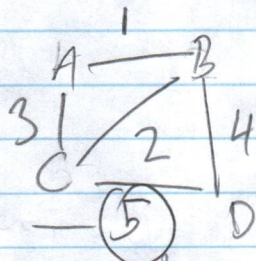 1
A B
3 2 4
C D
5